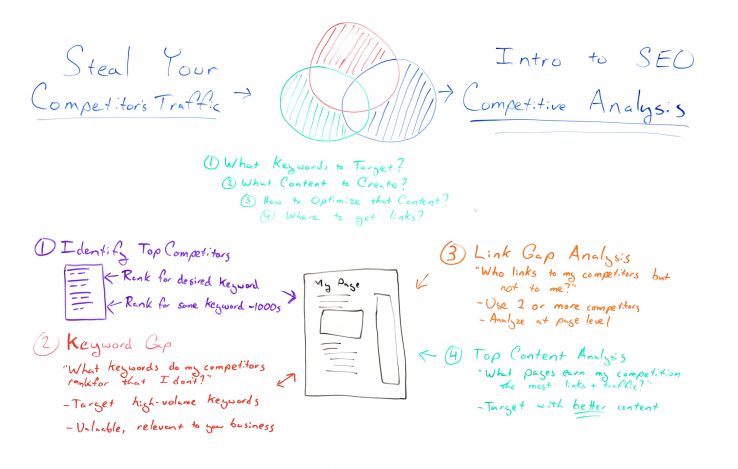 Steal Your
Competitor's Traffic
Intro to SEO
Competitive Analysis
① What Keywords to Target?
② What Content to Create?
③ How to Optimize that Content?
④ Where to get links?
① Identify Top Competitors
Rank for desired keyword
Rank for same keyword ~1000s
② Keyword Gap
"What keywords do my competitors
rank for that I dont?"
- Target high-volume keywords
- Valuable, relevant to your business
My Page
③ Link Gap Analysis
"Who links to my competitors but
not to me?"
- Use 2 or more competitors
- Analyze at page level
④ Top Content Analysis
"What pages earn my competition
the most links + traffic?"
- Target with better content